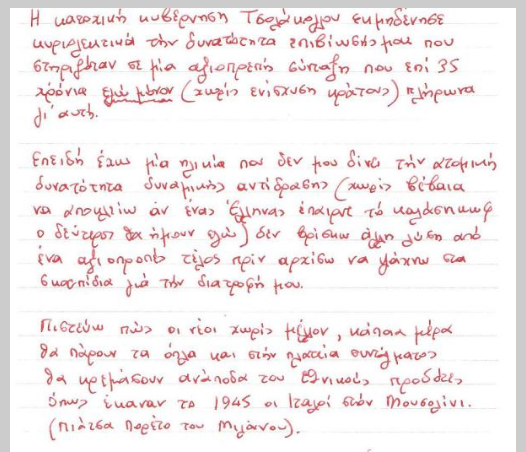 Η κατοχική κυβέρνηση Τσολάκογλου εκμηδένησε
κυριολεκτικά την δυνατότητα επιβίωσής μου που
στηριζόταν σε μία αξιοπρεπή σύνταξη που επί 35
χρόνια εγώ μόνον (χωρίς ενίσχυση κράτους) πλήρωνα
γι' αυτή.
Επειδή έχω μία ηλικία που δεν μου δίνει την ατομική
δυνατότητα δυναμικής αντίδρασης (χωρίς βέβαια
να αποκλείω αν ένας Έλληνας έπαιρνε το καλάσνικωφ
ο δεύτερος θα ήμουν εγώ) δεν βρίσκω άλλη λύση από
ένα αξιοπρεπές τέλος πριν αρχίσω να ψάχνω στα
σκουπίδια για την διατροφή μου.
Πιστεύω πως οι νέοι χωρίς μέλλον, κάποια μέρα
θα πάρουν τα όπλα και στην πλατεία συντάγματος
θα κρεμάσουν ανάποδα του εθνικούς προδότες
όπως έκαναν το 1945 οι Ιταλοί στον Μουσολίνι.
(Πιάτσα Λορέτο του Μιλάνου).